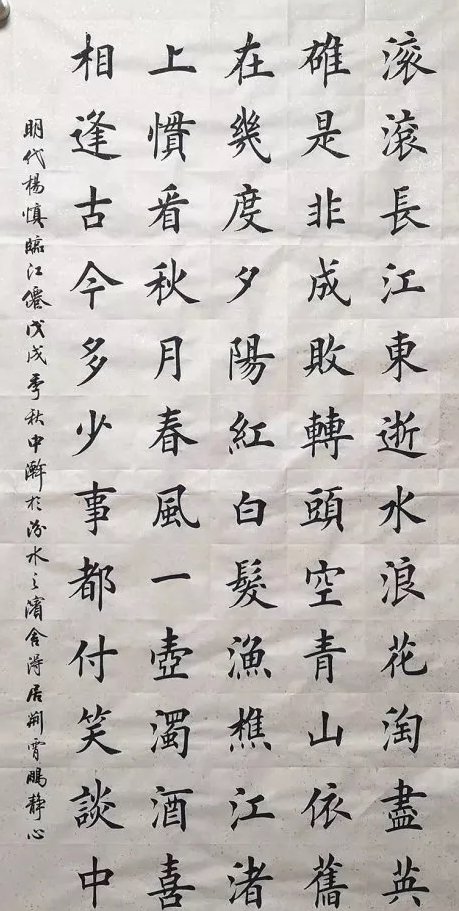 滚滾長江東逝水浪花淘盡英
雄是非成敗轉頭空青山依舊
在幾度夕陽紅白髮漁樵江渚
上慣看秋月春風一壺濁酒喜
相逢古今多少事都付笑談中
明代楊慎臨江僊戊戌季秋中澣於汾水之濱舍得居荊霄鵬静心